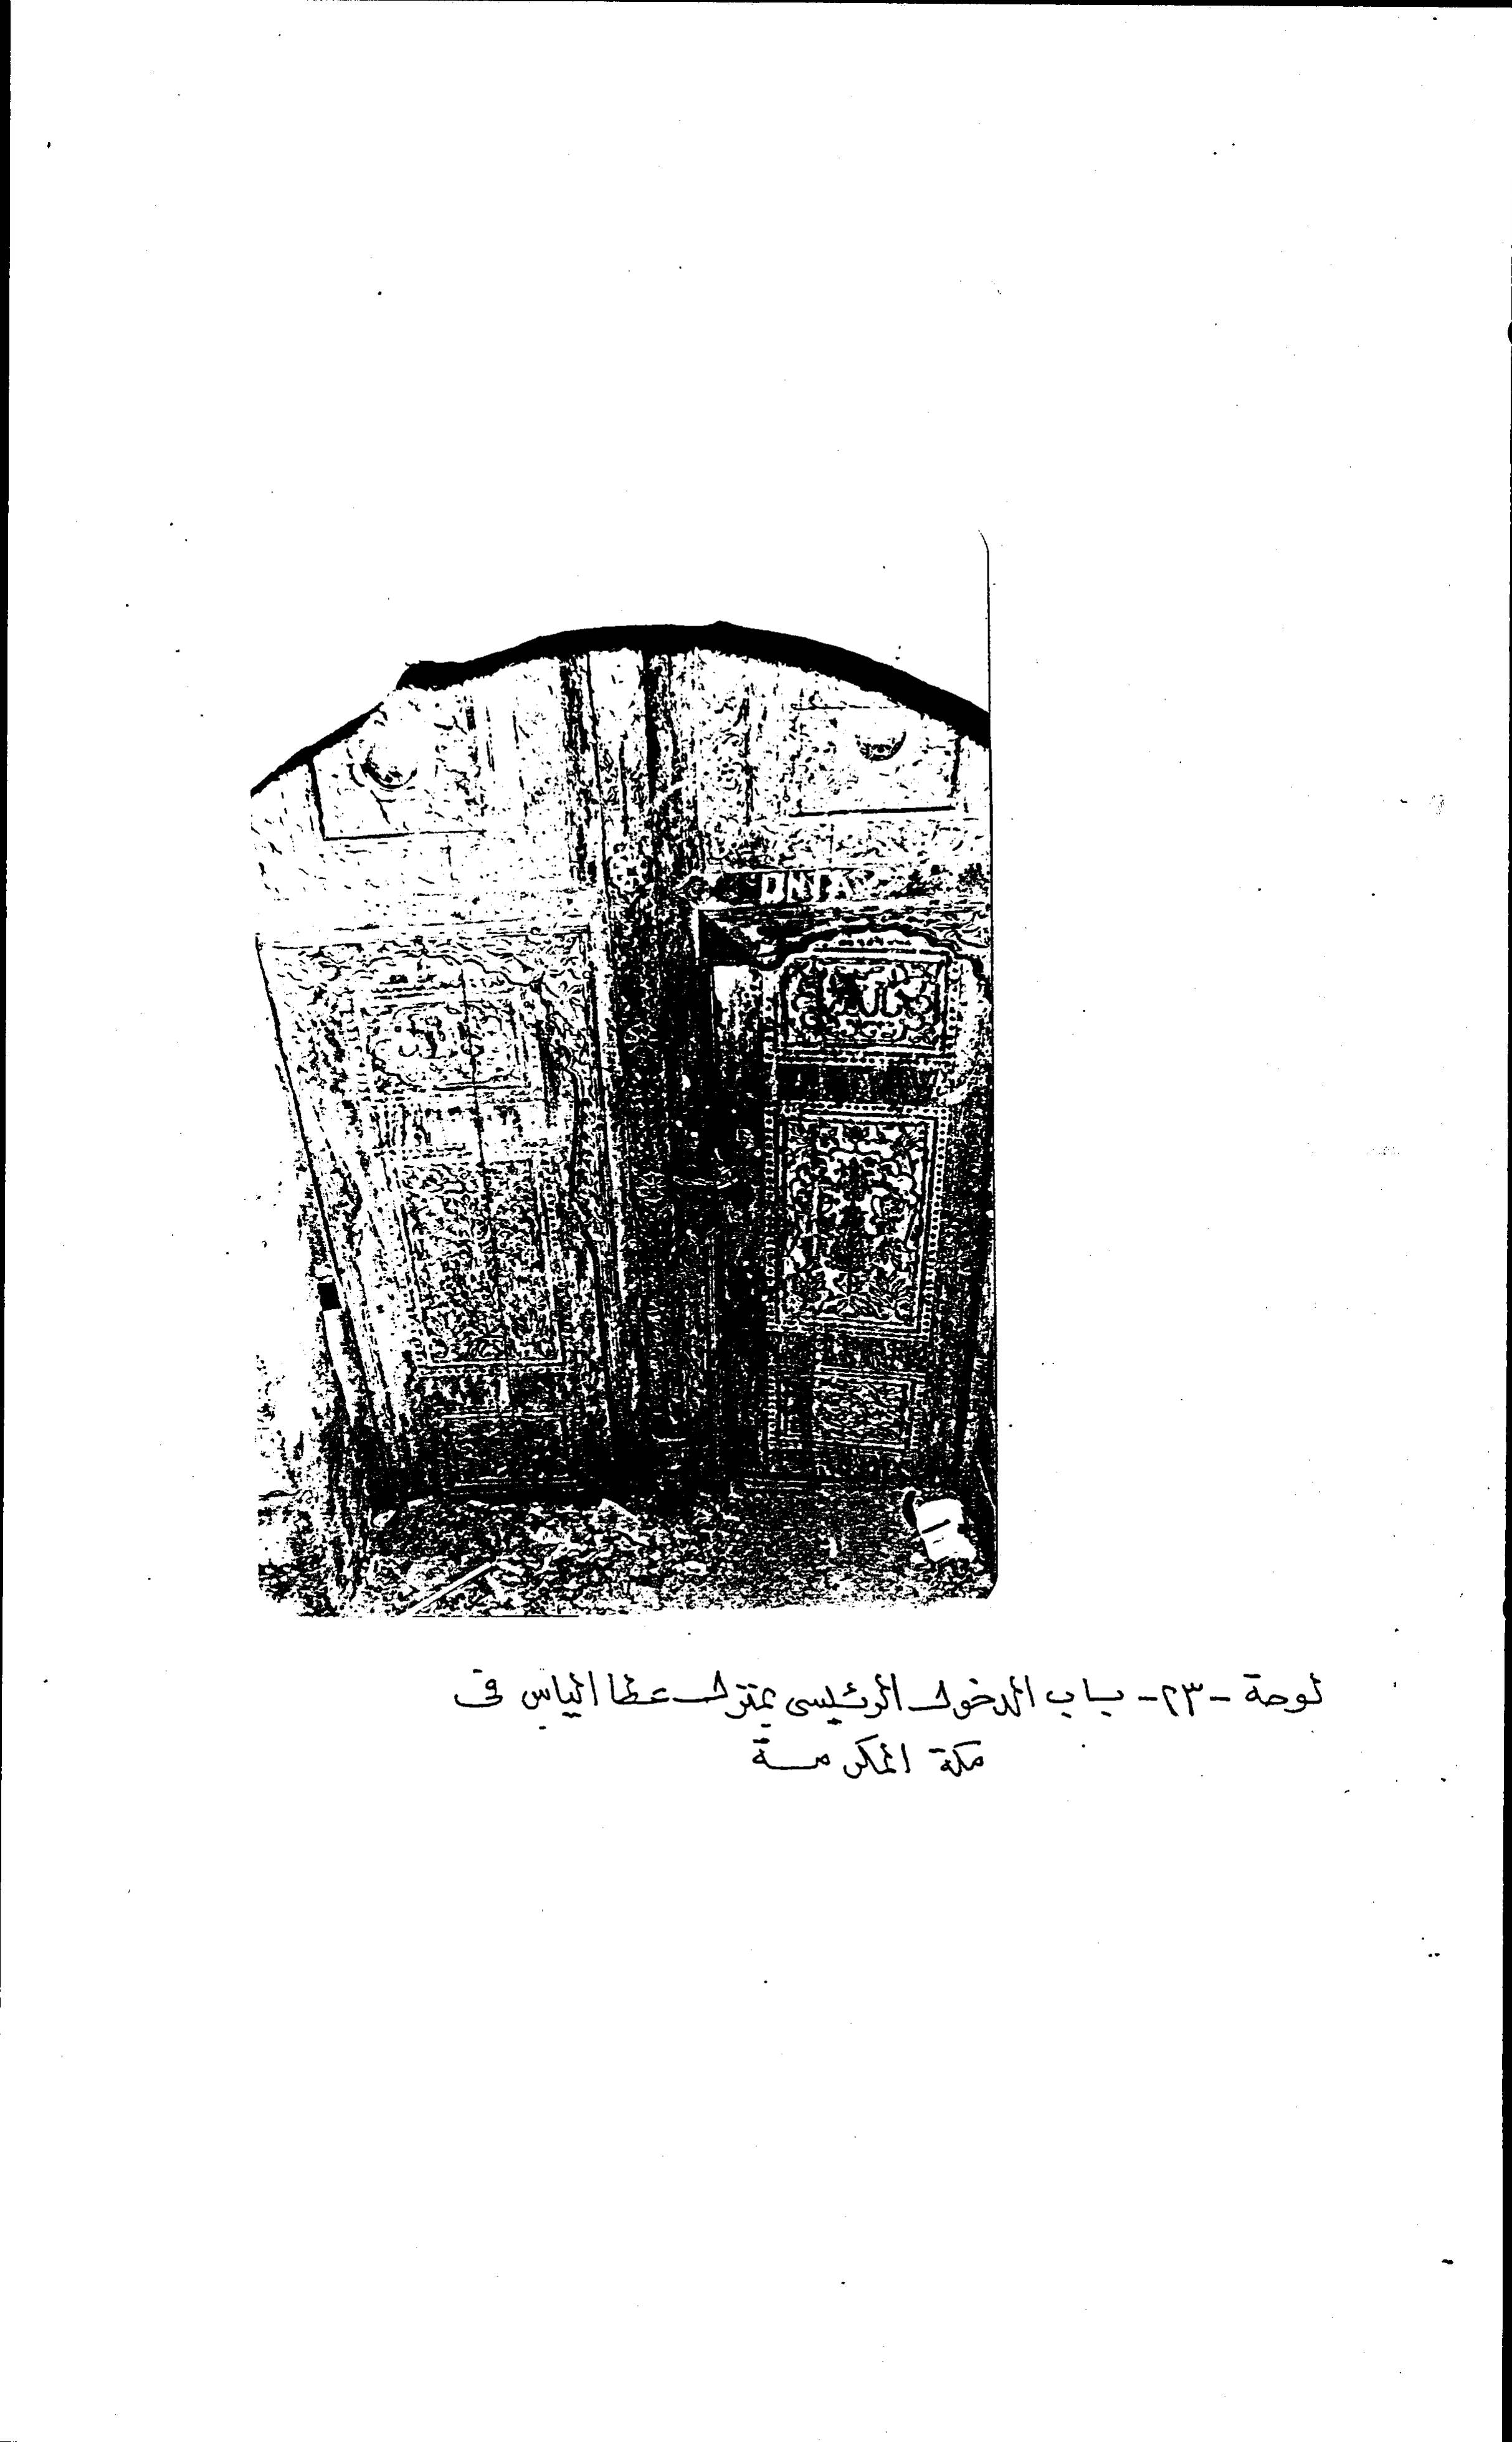 DNIA
لوحة -٢٣- باب الدخول الرئيسى بمنزل عطا الياس فى
مكة المكرمة